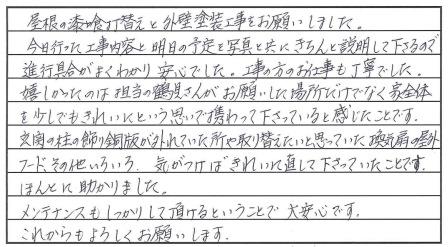 屋根の漆喰打替えと外壁塗装工事をお願いしました。
今日行った工事内容と明日の予定を写真と共にきちんと説明して下さるので
進行具合がよくわかり安心でした。工事の方のお仕事も丁寧でした。
嬉しかったのは担当の鶴見さんがお願いした場所だけでなく家全体
を少しでもきれいにという思いで携わって下さっていると感じたことです。
玄関の柱の飾り銅版が外れていた所や取り替えたいと思っていた換気扇の屋外
フード、その他いろいろ、気がつけばきれいに直して下さっていたことです。
ほんとに助かりました。
メンテナンスもしっかりして頂けるということで大安心です。
これからもよろしくお願いします。